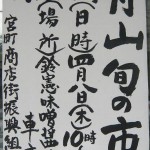 月山旬の市
(日時)四月八日(木)10時
(場所)鈴憲味噌醤
車
宮町商店街振興組